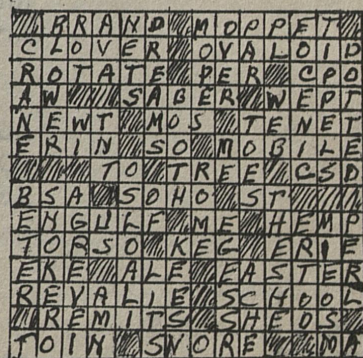 BRAND MOPPET
CLOVER OVALOID
ROTATE PER CPO
AW SABER WEPT
NEWT MOS TENET
ERIN SO MOBILE
TO TREE CSD
BSA SOHO ST
ENGULF ME HEMP
TORSO KEG ERIE
EKE ALE EASTER
REVALIE SCHOOL
REMITS SHEDS
TOIN SNORE MA